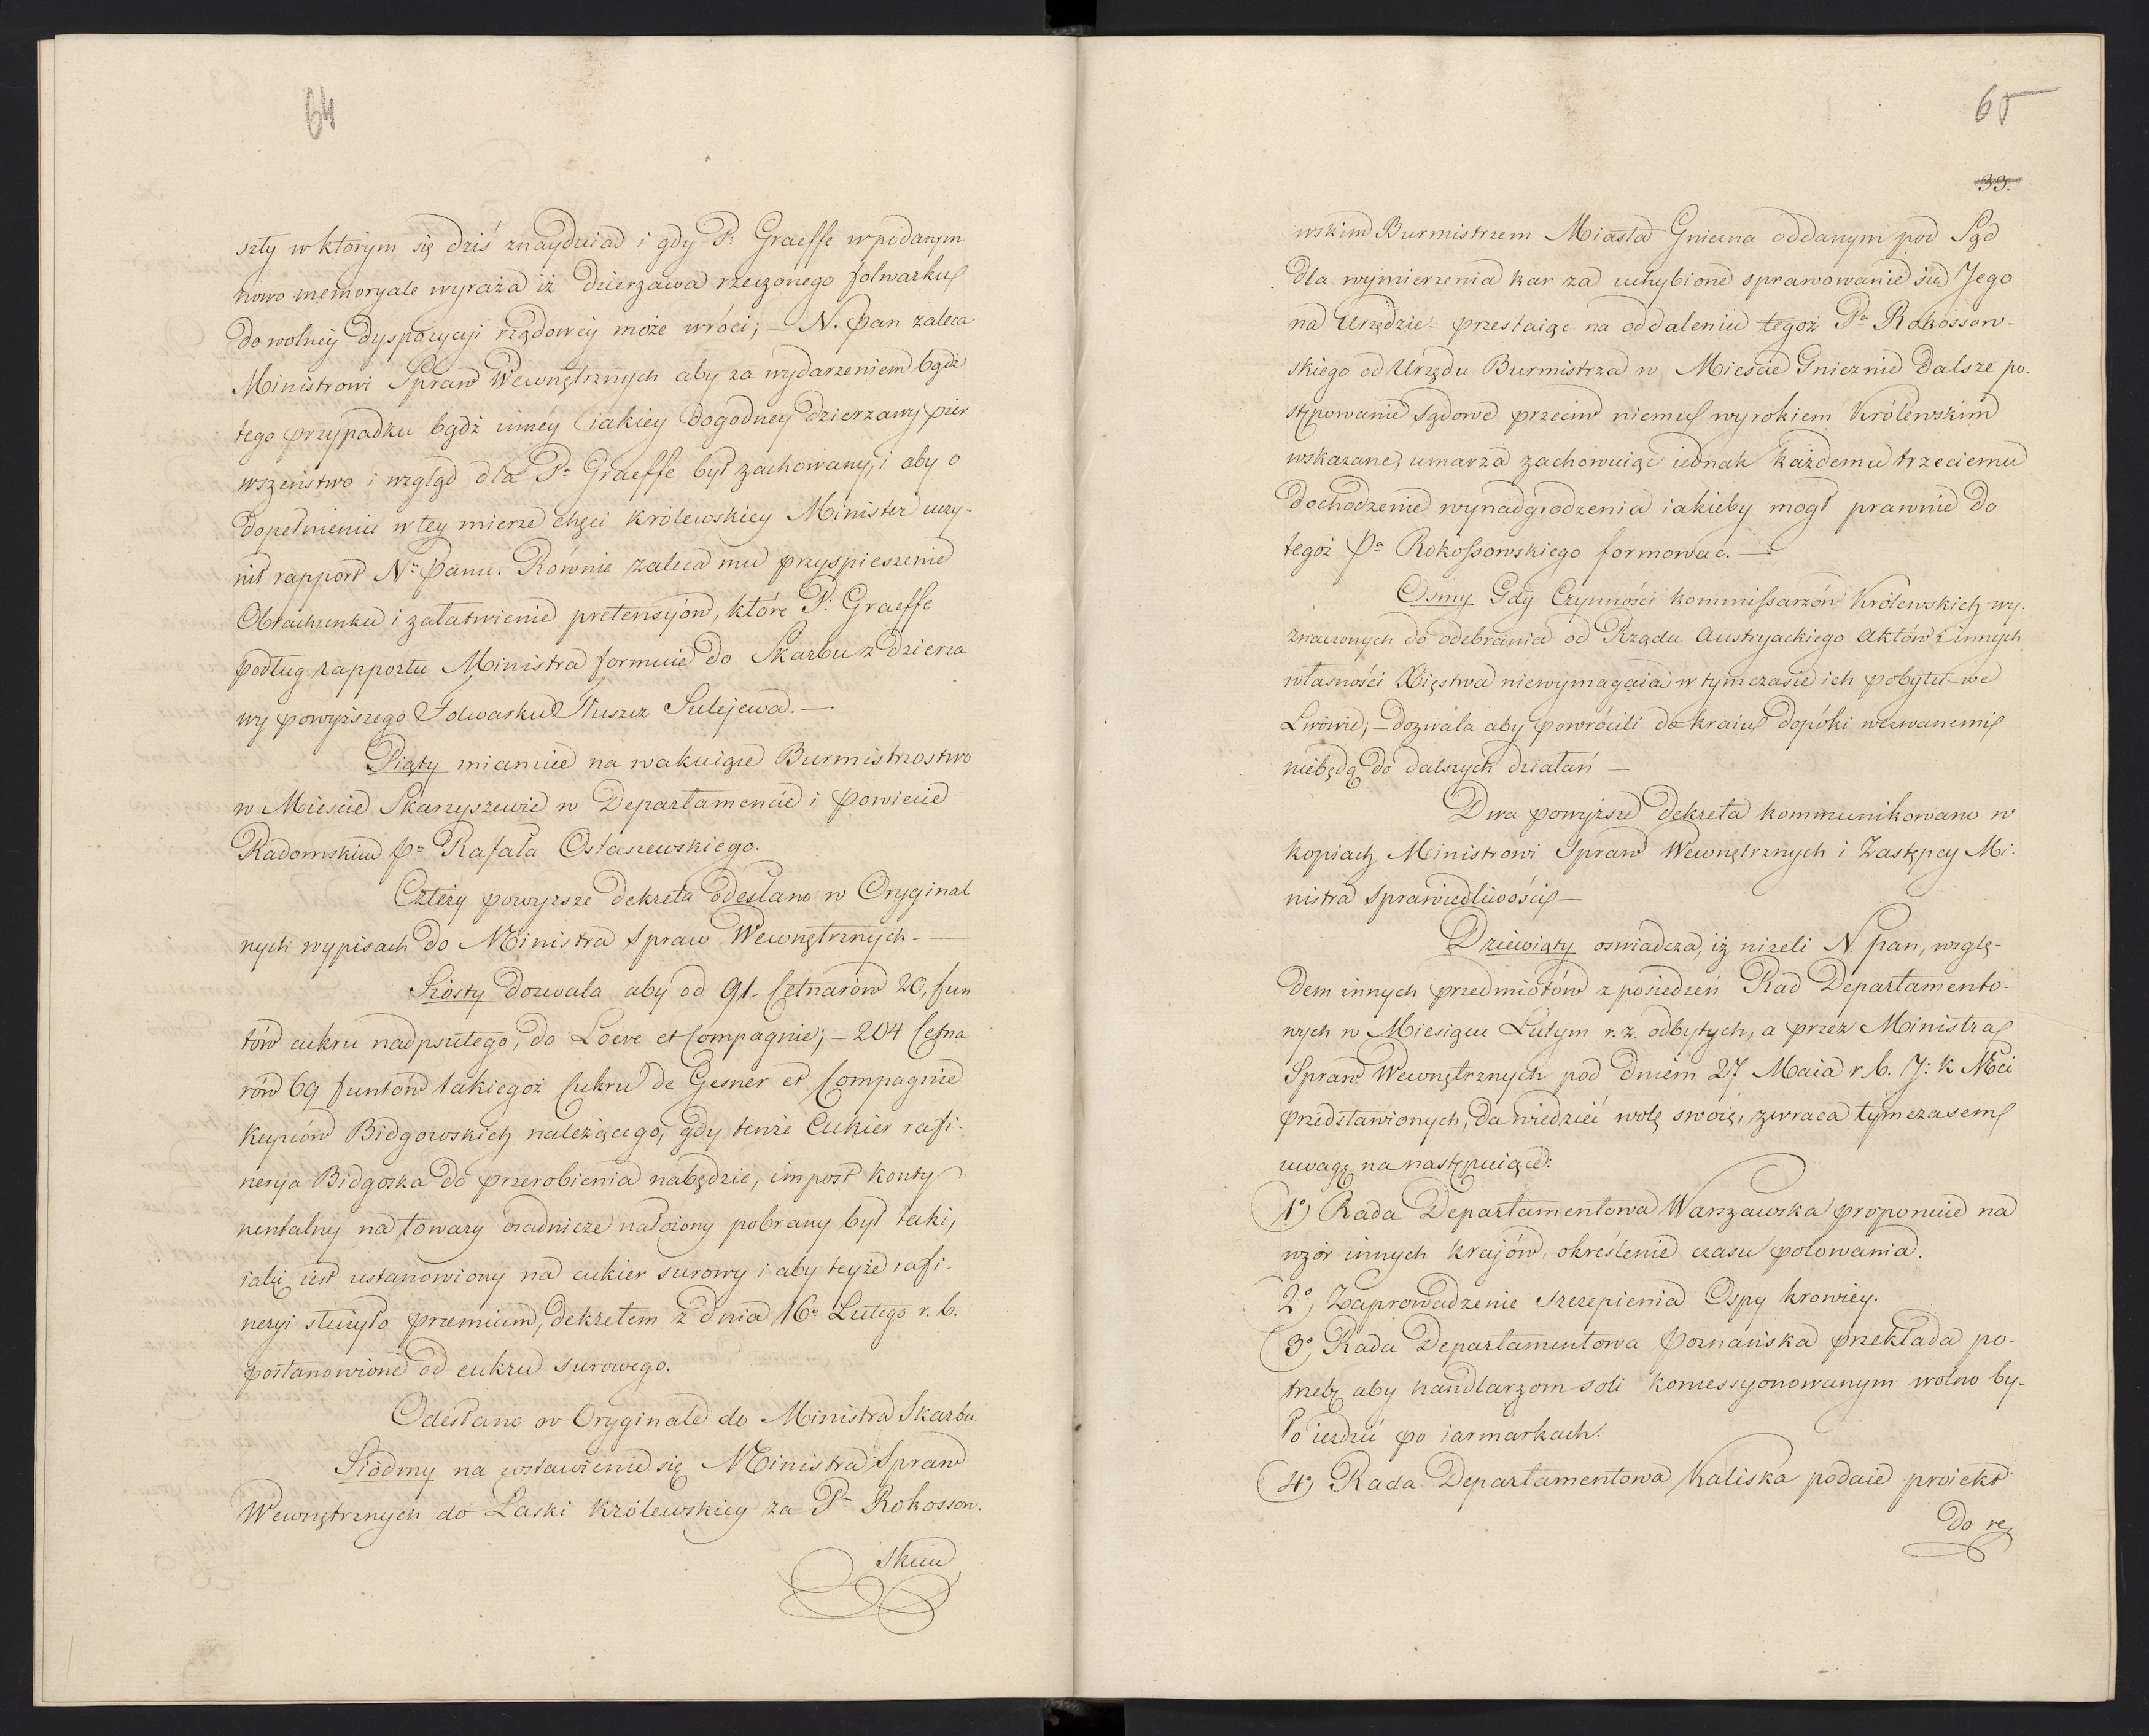 64
szły w którym się dziś znayduia i gdy P. Graeffe w podanym
nowo memoryale wyraża iż dzierżawa rzeczonego folwarku
do wolney dyspozycyi rządowey może wróci; — N. Pan zaleca
Ministrowi Spraw Wewnętrznych aby za wydarzeniem bądź
tego przypadku bądź inney iakiey dogodney dzierzawy pier
wszeństwo i wzgląd dla Pa Graeffe był zachowany, i aby o
dopełnieniu w tey mierze chęci Królewskiey Minister uczy-
nił rapport Nu Panu. Równie zaleca mu przyspieszenie
Obrachunku i załatwienie pretensyów, które P. Graeffe
podług rapportu Ministra formuie do Skarbu z dzierza
wy powyższego Folwarku Tłuszcz Sulejewa. —
Piąty mianuie na wakuiące Burmistrzostwo
w Mieście Skaryszewie w Departamencie i Powiecie
Radomskim Pa Rafała Ostaszewskiego.
Cztery powyzsze dekreta odesłano w Oryginal
nych wypisach do Ministra Spraw Wewnętrznych. —
Szósty dozwala aby od 91. Cetnarów 20, fun
tów cukru nadpsutego, do Loeve et Compagnie; — 204 Cetna
rów 69 funtów takiegoż Cukru de Gesner et Compagnie
Kupców Bidgowskich należącego, gdy tenże Cukier rafi-
nerya Bidgoska do przerobienia nabędzie, impost konty
nentalny na towary osadnicze nałożony pobrany był taki,
iaki iest ustanowiony na cukier surowy i aby teyże rafi-
neryi służyło przemium, dekretem z dnia 16o Lutego r. b.
postanowione od cukru surowego.
Odesłano w Oryginale do Ministra Skarbu
Siódmy na wstawienie się Ministra Spraw
Wewnętrznych do Łaski Królewskiey za Pa Rokossow-
skim
65
33.
wskim Burmistrzem Miasta Gniezna oddanym pod Sąd
dla wymierzenia kar za uchybione sprawowanie się Jego
na Urzędzie – przestaiąc na oddaleniu tegoż Pa Rokossow-
skiego od Urzędu Burmistrza w Mieście Gnieznie dalsze po-
stępowanie sądowe przeciw niemu wyrokiem Królewskim
wskazane, umarza zachowuiąc iednak każdemu trzeciemu
dochodzenie wynadgrodzenia iakieby mogł prawnie do
tegoż Pa Rokossowskiego formować. —
Osmy Gdy Czynności Kommissarzów Królewskich wy-
znaczonych do odebrania od Rządu Austryackiego Aktów i innych
własności Xięstwa niewymagaią w tym czasie ich pobytu we
Lwowie; — dozwala aby powrócili do kraiu dopóki wezwanemi
niebędą do dalszych działań —
Dwa powyższe dekreta kommunikowano w
kopiach Ministrowi Spraw Wewnętrznych i Zastępcy Mi-
nistra Sprawiedliwości —
Dziewiąty oswiadcza, iż nizeli N. Pan, wzglę-
dem innych przedmiotów z posiedzeń Rad Departamento-
wych w Miesiącu Lutym r. z. odbytych, a przez Ministra
Spraw Wewnętrznych pod dniem 27 Maia r. b. J: K Mci
przedstawionych, da wiedzieć wolę swoię, zwraca tymczasem
uwagę na następuiące:
1o) Rada Departamentowa Warszawska proponuie na
wzór innych krajów, określenie czasu polowania.
2o, Zaprowadzenie szczepienia Ospy krowiey.
3o Rada Departamentowa Poznańska przekłada po-
trzebę aby handlarzom soli koncessyonowanym wolno by-
ło iezdzić po iarmarkach.
4o, Rada Departamentowa Kaliska podaie proiekt
do re